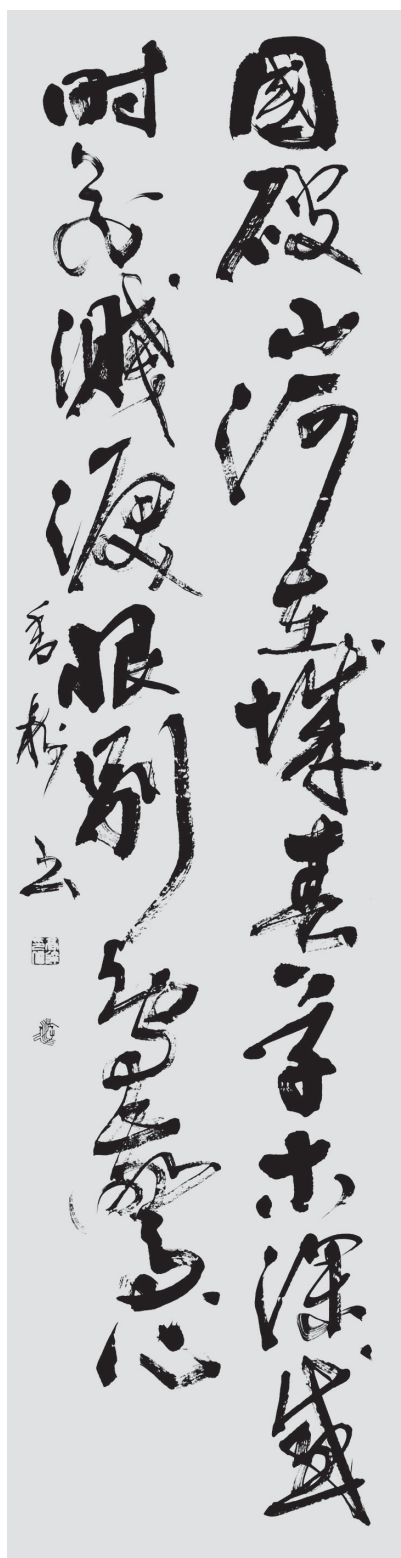 國破山河在城春草木深感
時花濺淚恨別鳥驚心
香粉书